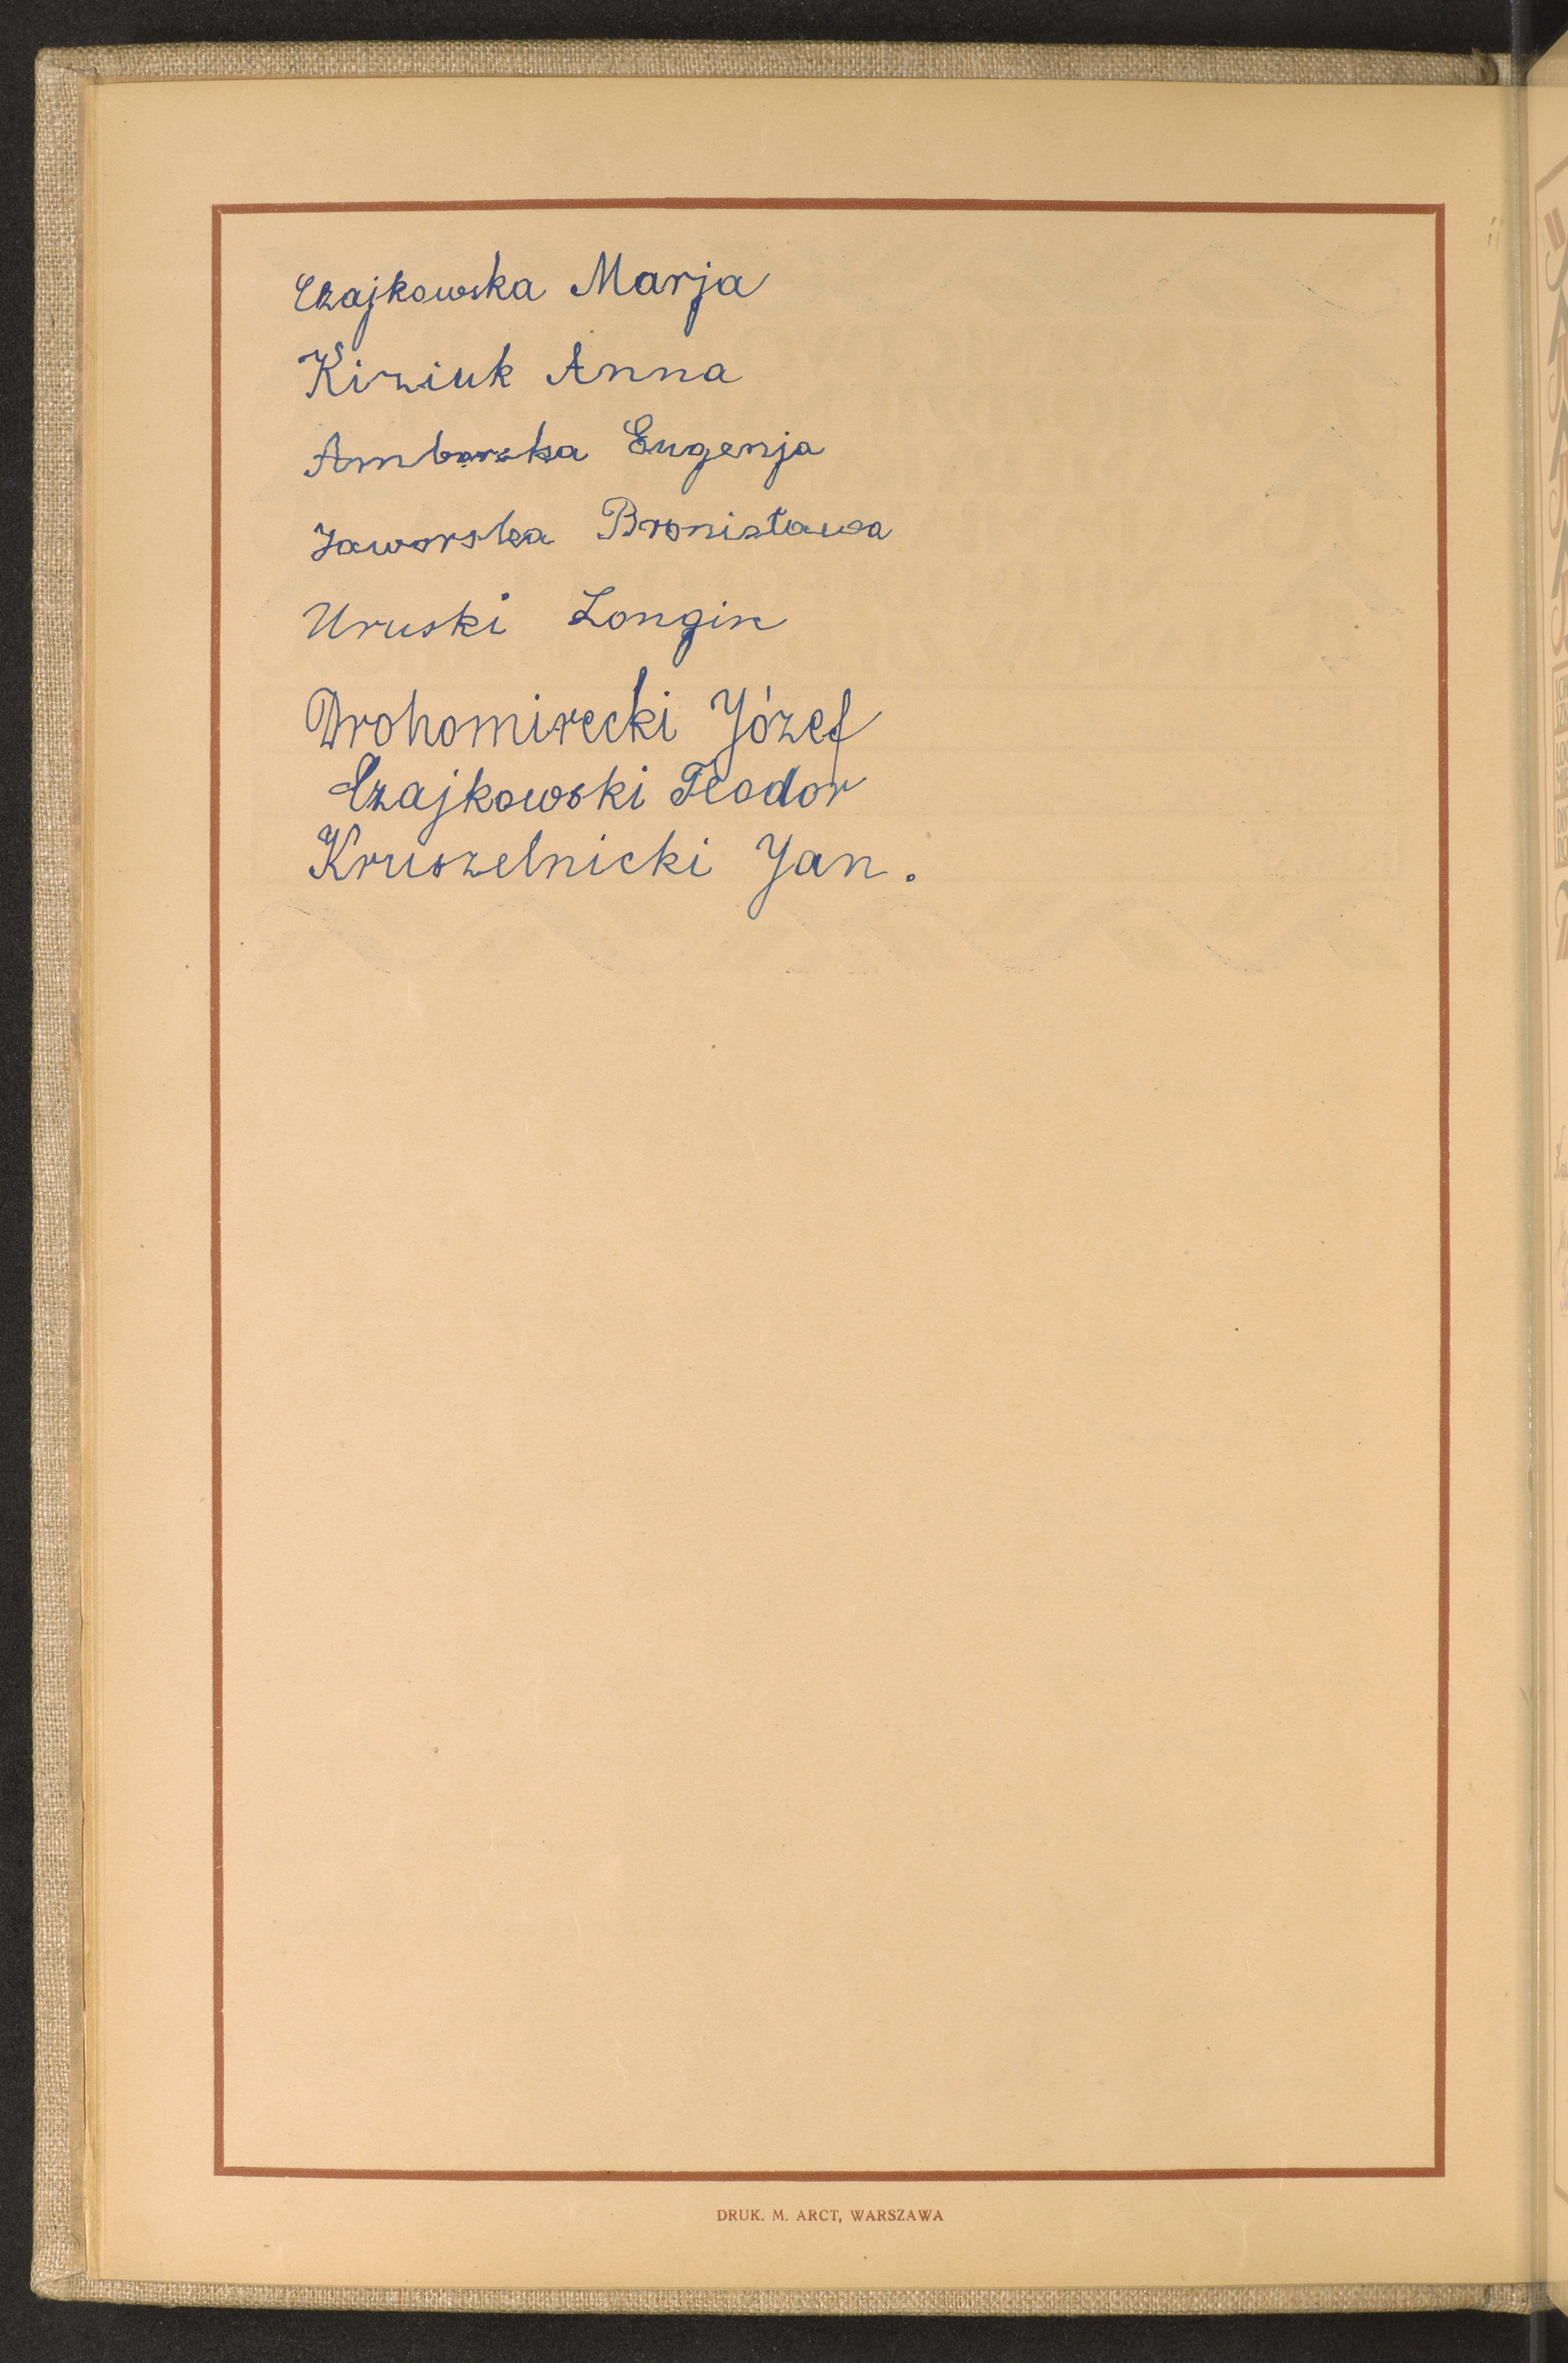 Czajkowska Marja
Kiziuk Anna
Amborska Eugenja
Jaworska Bronisława
Uruski Longin
Drohomirecki Józef
Czajkowski Teodor
Kruszelnicki Jan.
DRUK. M. ARCT, WARSZAWA